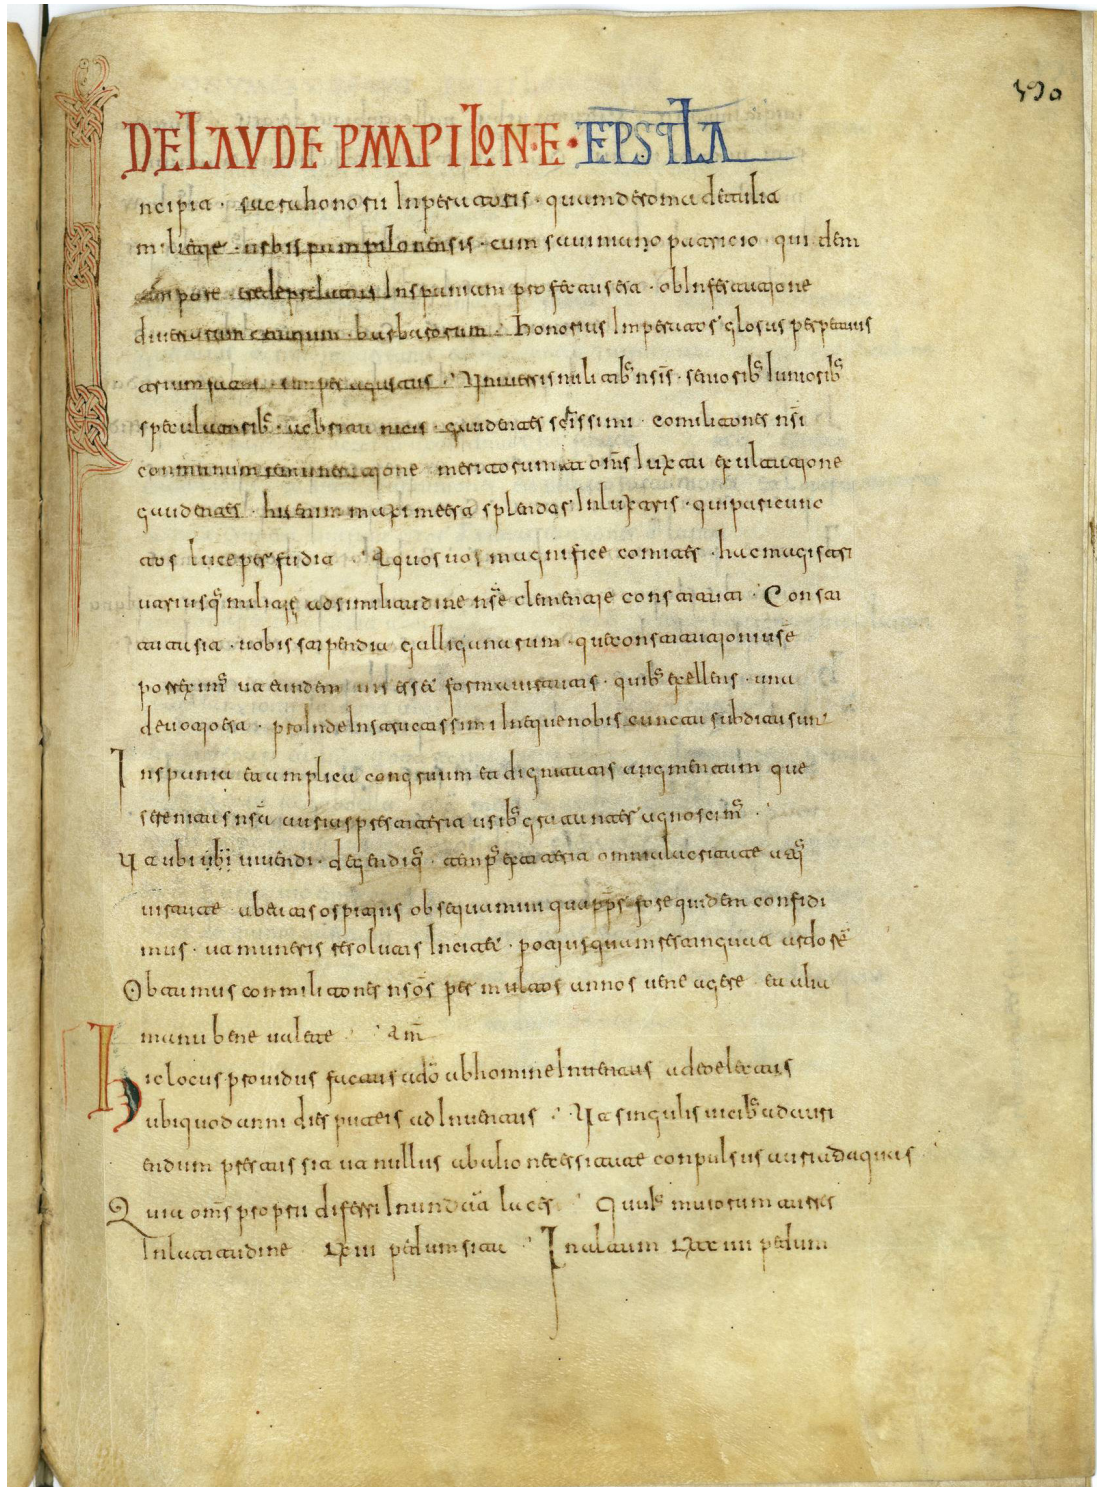 190
DE LAUDE PAMPILONE EPSTLA
Incipia . sacra honorii Inperatoris . quam de roma detulia
militie urbis pampilonensis . cum saviniano patricio qui dem
tempore Inspaniam profectus est . ob Infestatione
diversarum gentium barbarorum . honorius Imperator glosus perpetuus
triumfator . semper agustus . Universis militibs nsis . seniorib Iunioribs
speculatorib . gaudentes scissimi comilitones nsi
communium remuneratione meritorum et oms Iuxta exultatione
gaudentes . hic enim maxime est splendor Inlustris . qui pari cunc
tos luce perfudit . A quos vos magnifice comites . hac magistri
utriusq militie ad similitudine nse clementie constituta . Constitu
tura sit vobis stipendia gallicanarum . que constitutioni vse
porreximus ut eindem vis esset forma virtutis . quibs exellens . una
devotio est . proInde Instructissimi Ineque nobis cuncta subdita sunt
Inspania et amplica congruum et dignitatis augmentum que
serenitatis nsa aurias prestiteria usibs gratantes agnoscim
Ut ubi ubi vivendi . degendiq . temps extiteria omni alacritate atq
virtute hospitiis obsequamini quapps fore quidem confidi
mus . ut muneris resolutis Incitet . potius quam restinguat ardore
Obtamus conmilitones nsos per multos annos vene agere et alia
manu bene valete . Am
hic locus providus factus a do ab homine Inventus a deo electus
ubi quod anni dies puteis ad Inventus . Ut singulis vicibs ad auri
endum prestus sit ut nullus ab alio necessitate conpulsus auriad aquas
Quia oms propria diferri Inundatia laces . Quuis murorum turres
Inlatitudine LXIII pedum sita . In altum LXXXIIII pedum